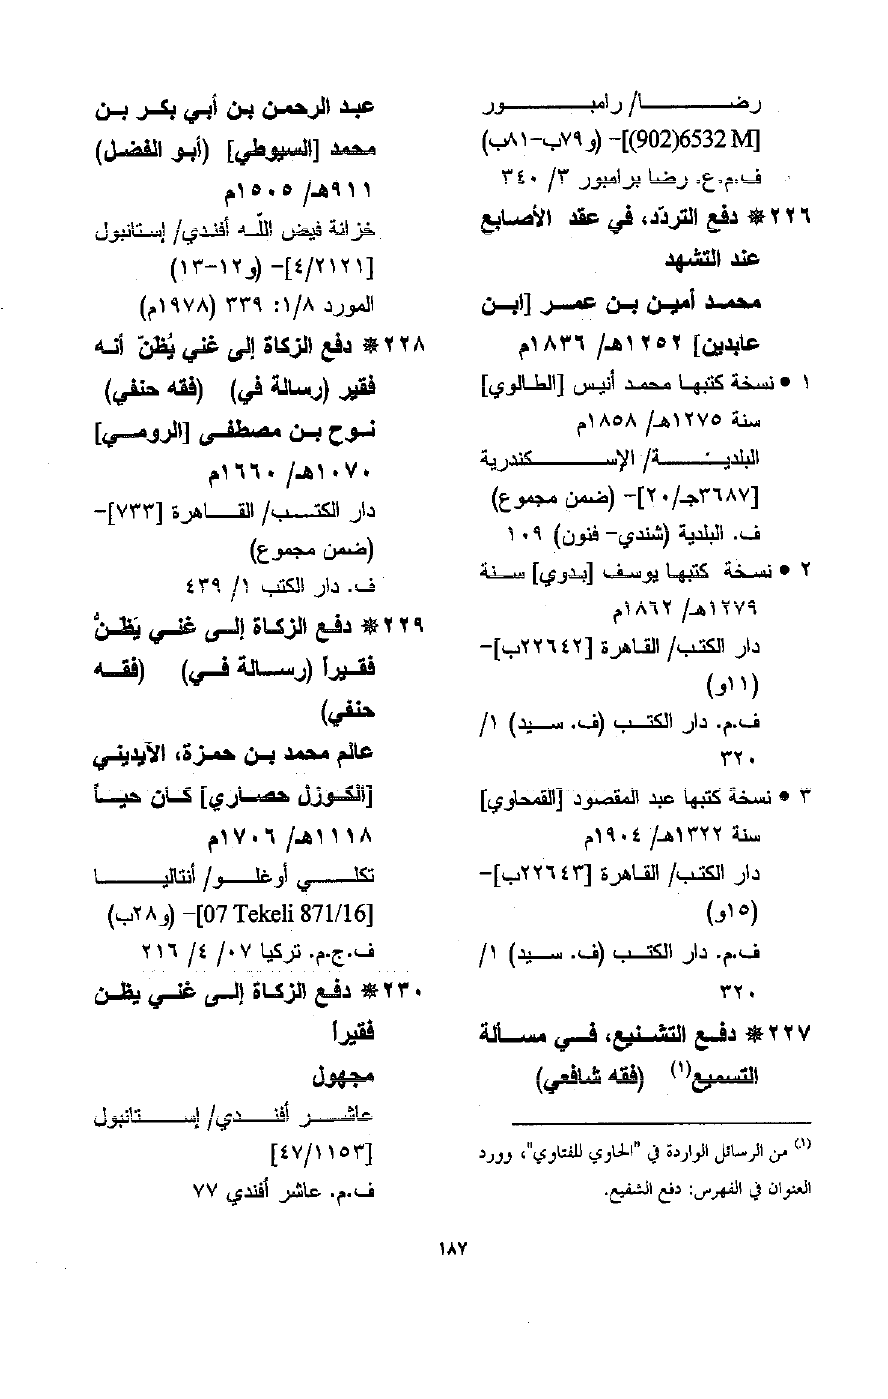 رضا/ رامبور
[6532 M(902)]- (و٧٩ب-٨١ب)
ف.م.ع. رضا برامبور ٣/ ٣٤٠
٢٢٦ * دفع التردّد، في عقد الأصابع
عند التشهد
محمد أمين بن عمر [ابن
عابدين] ١٢٥٢هـ/ ١٨٣٦م
١ • نسخة كتبها محمد أنيس [الطالوي]
سنة ١٢٧٥هـ/ ١٨٥٨م
البلدية/ الإسكندرية
[٣٦٨٧جـ/٢٠]- (ضمن مجموع)
ف. البلدية (شندي- فنون) ١٠٩
٢ • نسخة كتبها يوسف [بدوي] سنة
١٢٧٩هـ/ ١٨٦٢م
دار الكتب/ القاهرة [٢٢٦٤٢ب]-
(١١و)
ف.م. دار الكتب (ف. سيد) ١/
٣٢٠
٣ • نسخة كتبها عبد المقصود [القمحاوي]
سنة ١٣٢٢هـ/ ١٩٠٤م
دار الكتب/ القاهرة [٢٢٦٤٣ب]-
(١٥و)
ف.م. دار الكتب (ف. سيد) ١/
٣٢٠
٢٢٧ * دفع التشنيع، في مسألة
التسميع(١) (فقه شافعي)
(١) من الرسائل الواردة في "الحاوي للفتاوي"، وورد
العنوان في الفهرس: دفع الشفيع.
عبد الرحمن بن أبي بكر بن
محمد [السيوطي] (أبو الفضل)
٩١١هـ/ ١٥٠٥م
خزانة فيض اللّه أفندي/ إستانبول
[٤/٢١٢١]- (و١٢-١٣)
المورد ١/٨: ٣٣٩ (١٩٧٨م)
٢٢٨ * دفع الزكاة إلى غني يُظنّ أنه
فقير (رسالة في) (فقه حنفي)
نوح بن مصطفى [الرومي]
١٠٧٠هـ/ ١٦٦٠م
دار الكتب/ القاهرة [٧٣٣]-
(ضمن مجموع)
ف. دار الكتب ١/ ٤٣٩
٢٢٩ * دفع الزكاة إلى غني يَظنُّ
فقيراً (رسالة في) (فقه
حنفي)
عالم محمد بن حمزة، الآيديني
[الكوزل حصاري] كان حياً
١١١٨هـ/ ١٧٠٦م
تكلي أوغلو/ أنتاليا
[07 Tekeli 871/16]- (و٢٨ب)
ف.ج.م. تركيا ٠٧/ ٤/ ٢١٦
٢٣٠ * دفع الزكاة إلى غني يظن
فقيراً
مجهول
عاشر أفندي/ إستانبول
[٤٧/١١٥٣]
ف.م. عاشر أفندي ٧٧
١٨٧